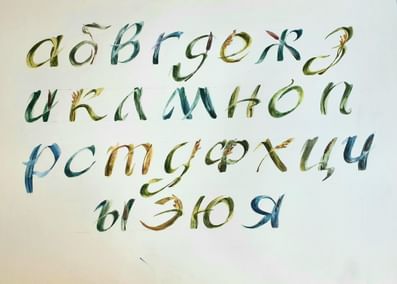 абвгдежз
иклмноп
рстуфхцч
ыэюя